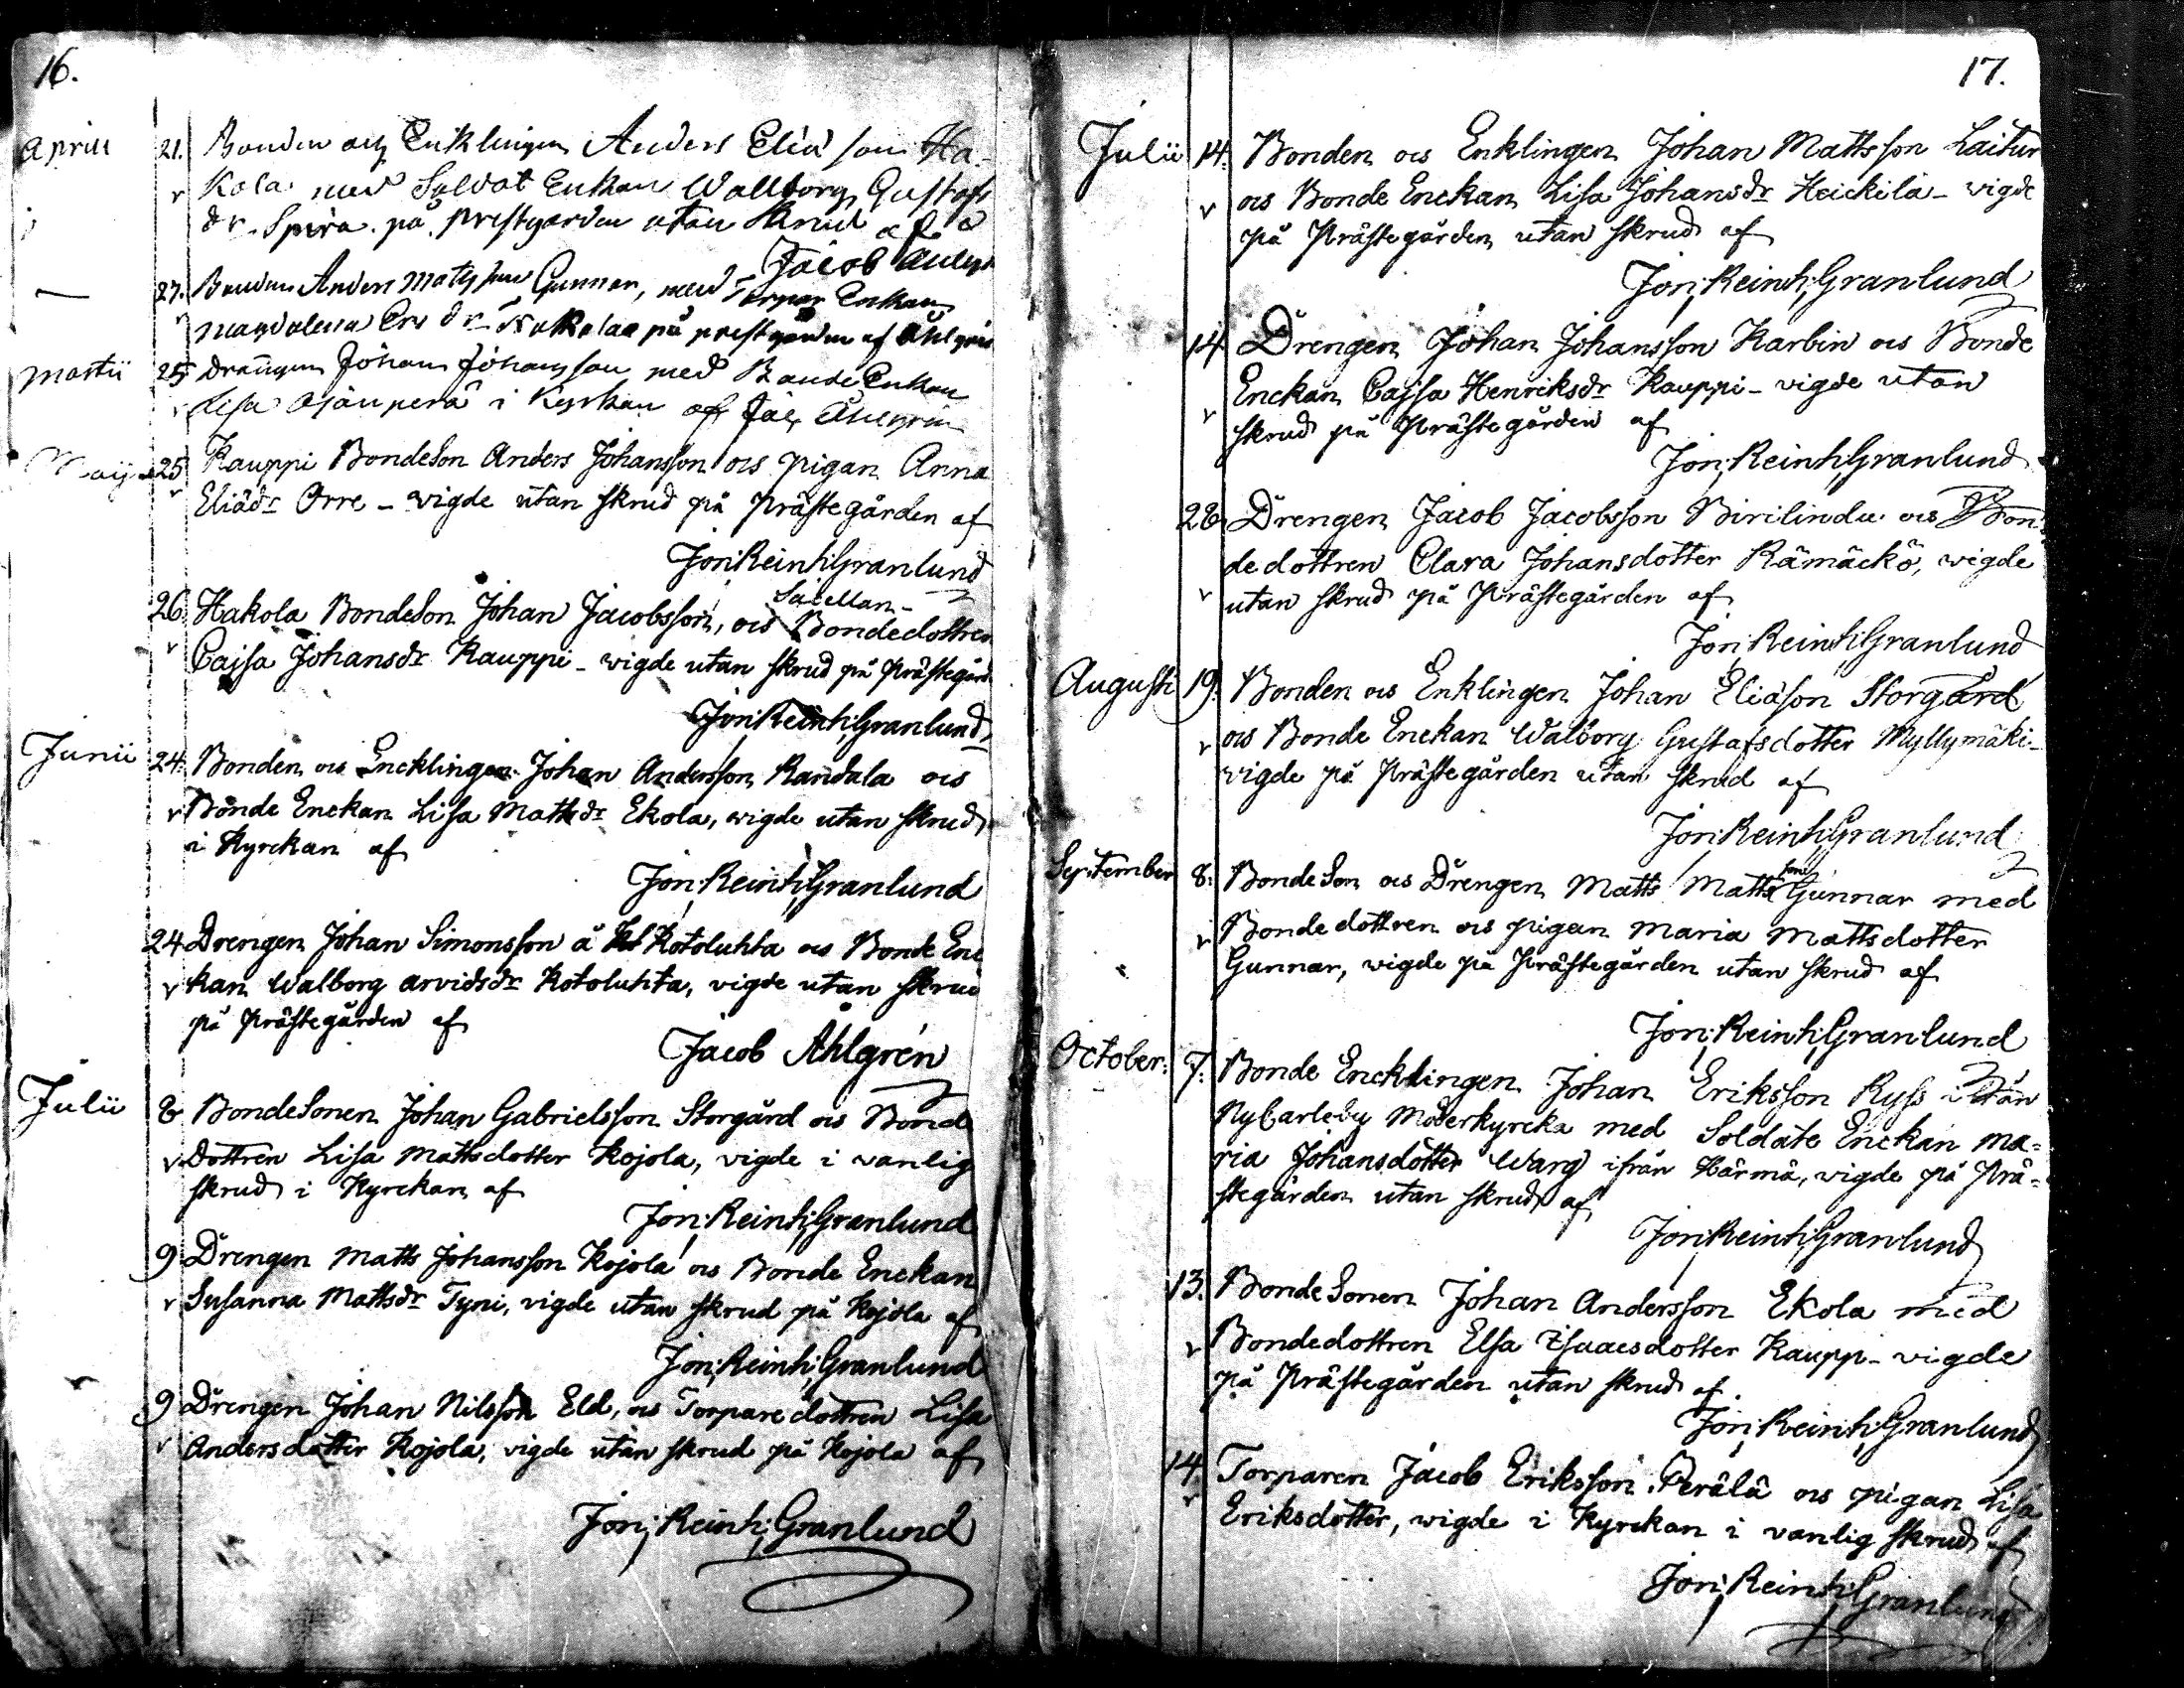 16.
April 21. Bonden och Enklingen Anders Eliæ son Ha-
kola med Soldat Enkan Wallborg Gustafs
dr. Spira på prestgården utan skrud af
Jacob
— 27. Bonden Anders Mats son Gunnar, med Torpar Enkan
Magdalena Ers dr Kokolaa på prestgården af Ahlgrén
Martii 25 Drängen Johan Johansson med Bonde Enkan
Lisa Ojanperä i Kyrkan af Jac. Ahlgrén
Maji 25 Kauppi BondeSon Anders Johansson ocs pigan Anna
Eliædr Orre - wigde utan skrud på Prästegården af
Jon: Reinh: Granlund
Sacellan-
26. Hakola BondeSon Johan Jacobsson, ocs Bondedottren
Cajsa Johansdr Kauppi - wigde utan skrud på Prästegård
Jon: Reinh: Granlund
Junii 24. Bonden ocs Encklingen Johan Andersson Randala ocs
Bonde Enckan Lisa Mattsdr Ekola, wigde utan skrud
i Kyrckan af
Jon: Reinh: Granlund
24 Drengen Johan Simonsson å Kotoluhta ocs Bonde Enc
kan Walborg Arvidsdr Kotoluhta, vigde utan skrud
på Prästegården af
Jacob Ahlgrén
Julii 8 BondeSonen Johan Gabrielsson Storgård ocs Bonde
Dottren Lisa Mattsdotter Kojola, vigde i vanlig
skrud i Kyrckan af
Jon: Reinh: Granlund
9 Drengen Matts Johansson Kojola ocs Bonde Enckan
Susanna Mattsdr Tyni, vigde utan skrud på Kojola af
Jon: Reinh: Granlund
9 Drengen Johan Nilsson Eld, ocs Torparedottren Lisa
Andersdotter Kojola, vigde utan skrud på Kojola af
Jon: Reinh: Granlund
17.
Julii 14. Bonden ocs Enklingen Johan Mattsson Laituri
ocs Bonde Enckan Lisa Johansdr Heickilä - vigde
på Prästegården utan skrud af
Jon: Reinh: Granlund
14 Drengen Johan Johansson Karbin ocs Bonde
Enckan Cajsa Henriksdr Kauppi - vigde utan
skrud på Prästegården af
Jon: Reinh: Granlund
28 Drengen Jacob Jacobsson Birilindu ocs Bon-
dedottren Clara Johansdotter Rämäckö, wigde
utan skrud på Prästegården af
Jon: Reinh: Granlund
Augusti 19. Bonden ocs Enklingen Johan Eliæson Storgård
ocs Bonde Enckan Walborg Gustafsdotter Myllymäki -
vigde på Prästegården utan skrud af
Jon: Reinh: Granlund
September 8. BondeSon ocs Drengen Matts Matts son Gunnar med
Bondedottren ocs pigan Maria Mattsdotter
Gunnar, vigde på Prästegården utan skrud af
Jon: Reinh: Granlund
October: 7. Bonde Encklingen Johan Eriksson Ryss ifrån
Nycarleby Moderkyrcka med Soldate Enckan Ma=
ria Johansdotter Warg ifrån Härmä, vigde på Prä=
stegården utan skrud af
Jon: Reinh: Granlund
13. BondeSonen Johan Andersson Ekola med
Bondedottren Elsa Isaacsdotter Kaupp - vigde
på Prästegården utan skrud af.
Jon: Reinh: Granlund
14. Torparen Jacob Eriksson Perälä ocs pigan Lisa
Eriksdotter, wigde i Kyrckan i vanlig skrud af
Jon: Reinh: Granlund